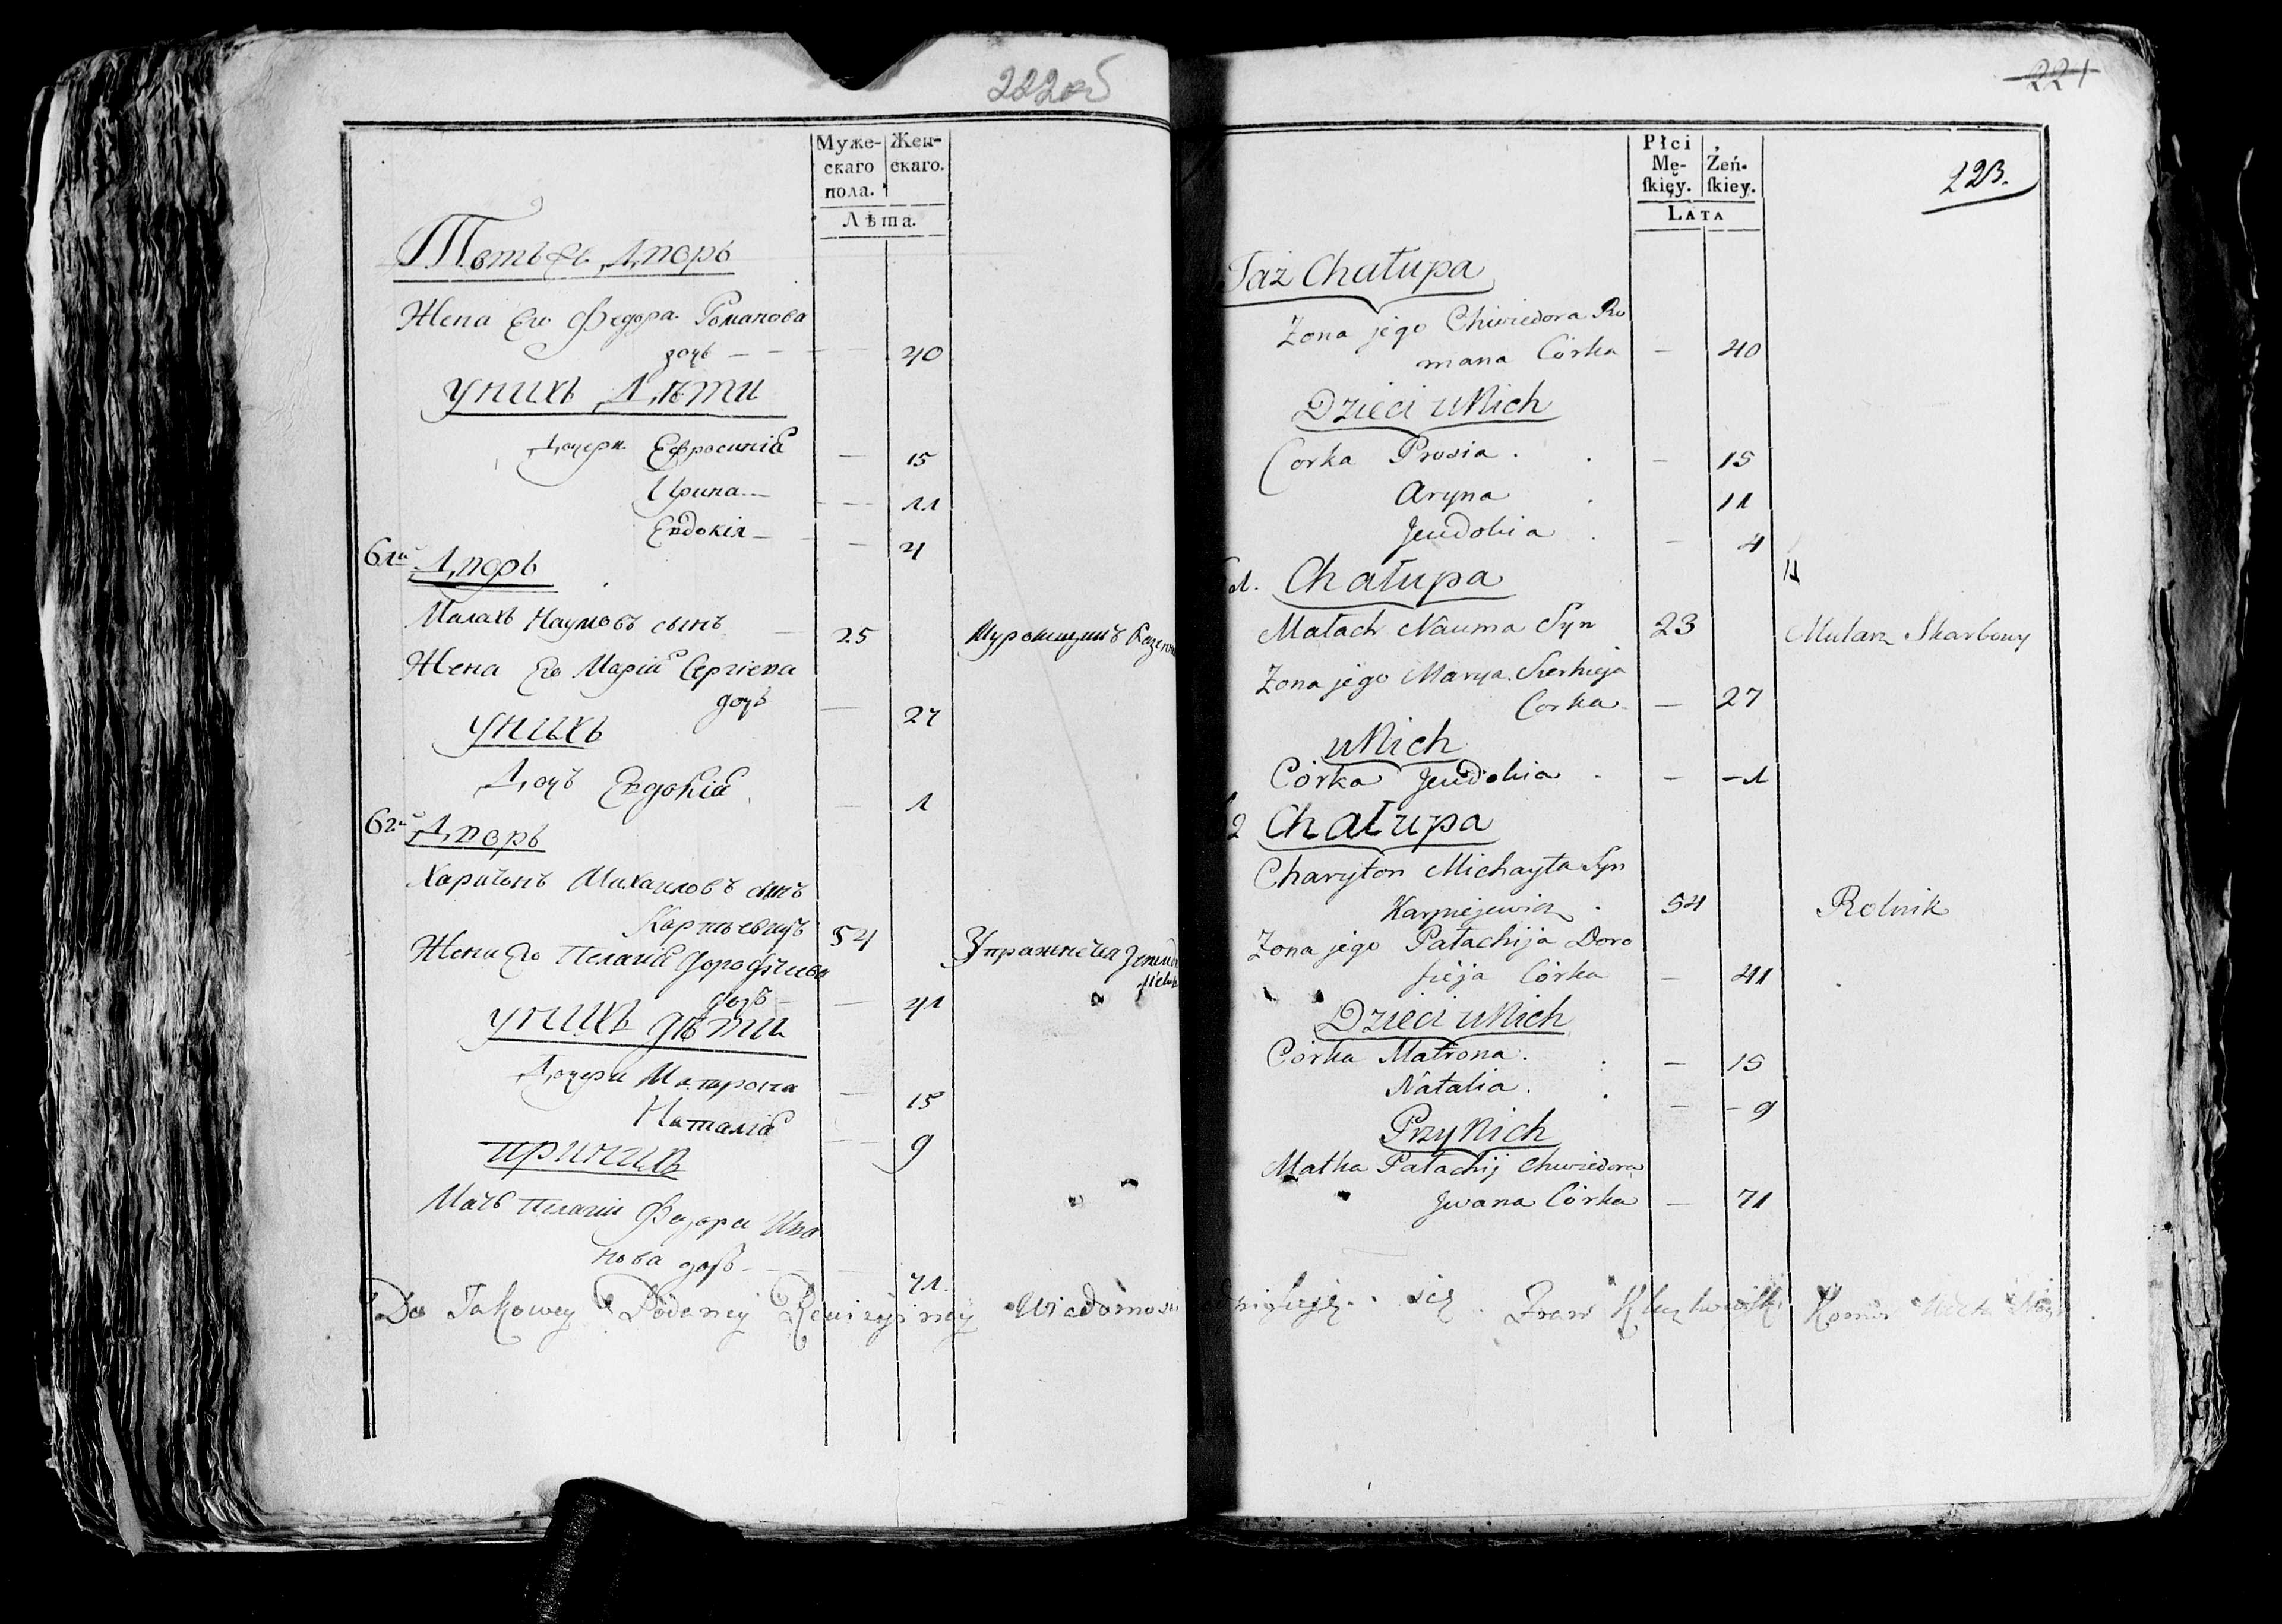 222об
Муже-
скаго
пола.
Жен-
скаго.
Лѣта.
Тотъ же Дворъ
Жена Его Федора Романова
дочь — — 40
У нихъ Дѣти
Дочери Ефросиніа — 15
Ирина — 11
Евдокія — 4
61й Дворъ
Малахъ Наумовъ сынъ — 25 Муровщикъ
Жена Его Маріа Сергіева
дочь — 27
У нихъ
Дочь Евдокіа — 1
62й Дворъ
Харитонъ Михаиловъ сынъ
Карпѣевичъ 54
Жена Его Пелагіа Дорофѣева
дочь — 41
У нихъ дѣти
Дочери Матрона — 15
Наталіа — 9
При нихъ
Мать Пелагіи Федора Ива
нова дочь — 71
Do Takowey Podaney Rewizyiney Wiadomości
221
223.
Płci
Mę-
ſkięy.
Żeń-
ſkiey.
LATA
Taż Chałupa
Żona jego Chwiedora Ro
mana Córka — 40
Dzieci u Nich
Corka Prosia . . — 15
Aryna . 11
Jeudokia . — 4
Chałupa
Małach Nauma Syn 23 Mularz Skarbowy
Żona jego Marya Sierhieja
Corka — 27
u Nich
Córka Jeudokia . — — 1
2 Chałupa
Charyton Michayła Syn
Karpiejewicz . 54 Rolnik
Żona jego Pałachija Doro
fieja Córka — 41
Dzieci u Nich
Córka Matrona . . — 15
Natalia . . — — 9
Przy Nich
Matka Pałachij Chwiedora
Jwana Córka — 71
się